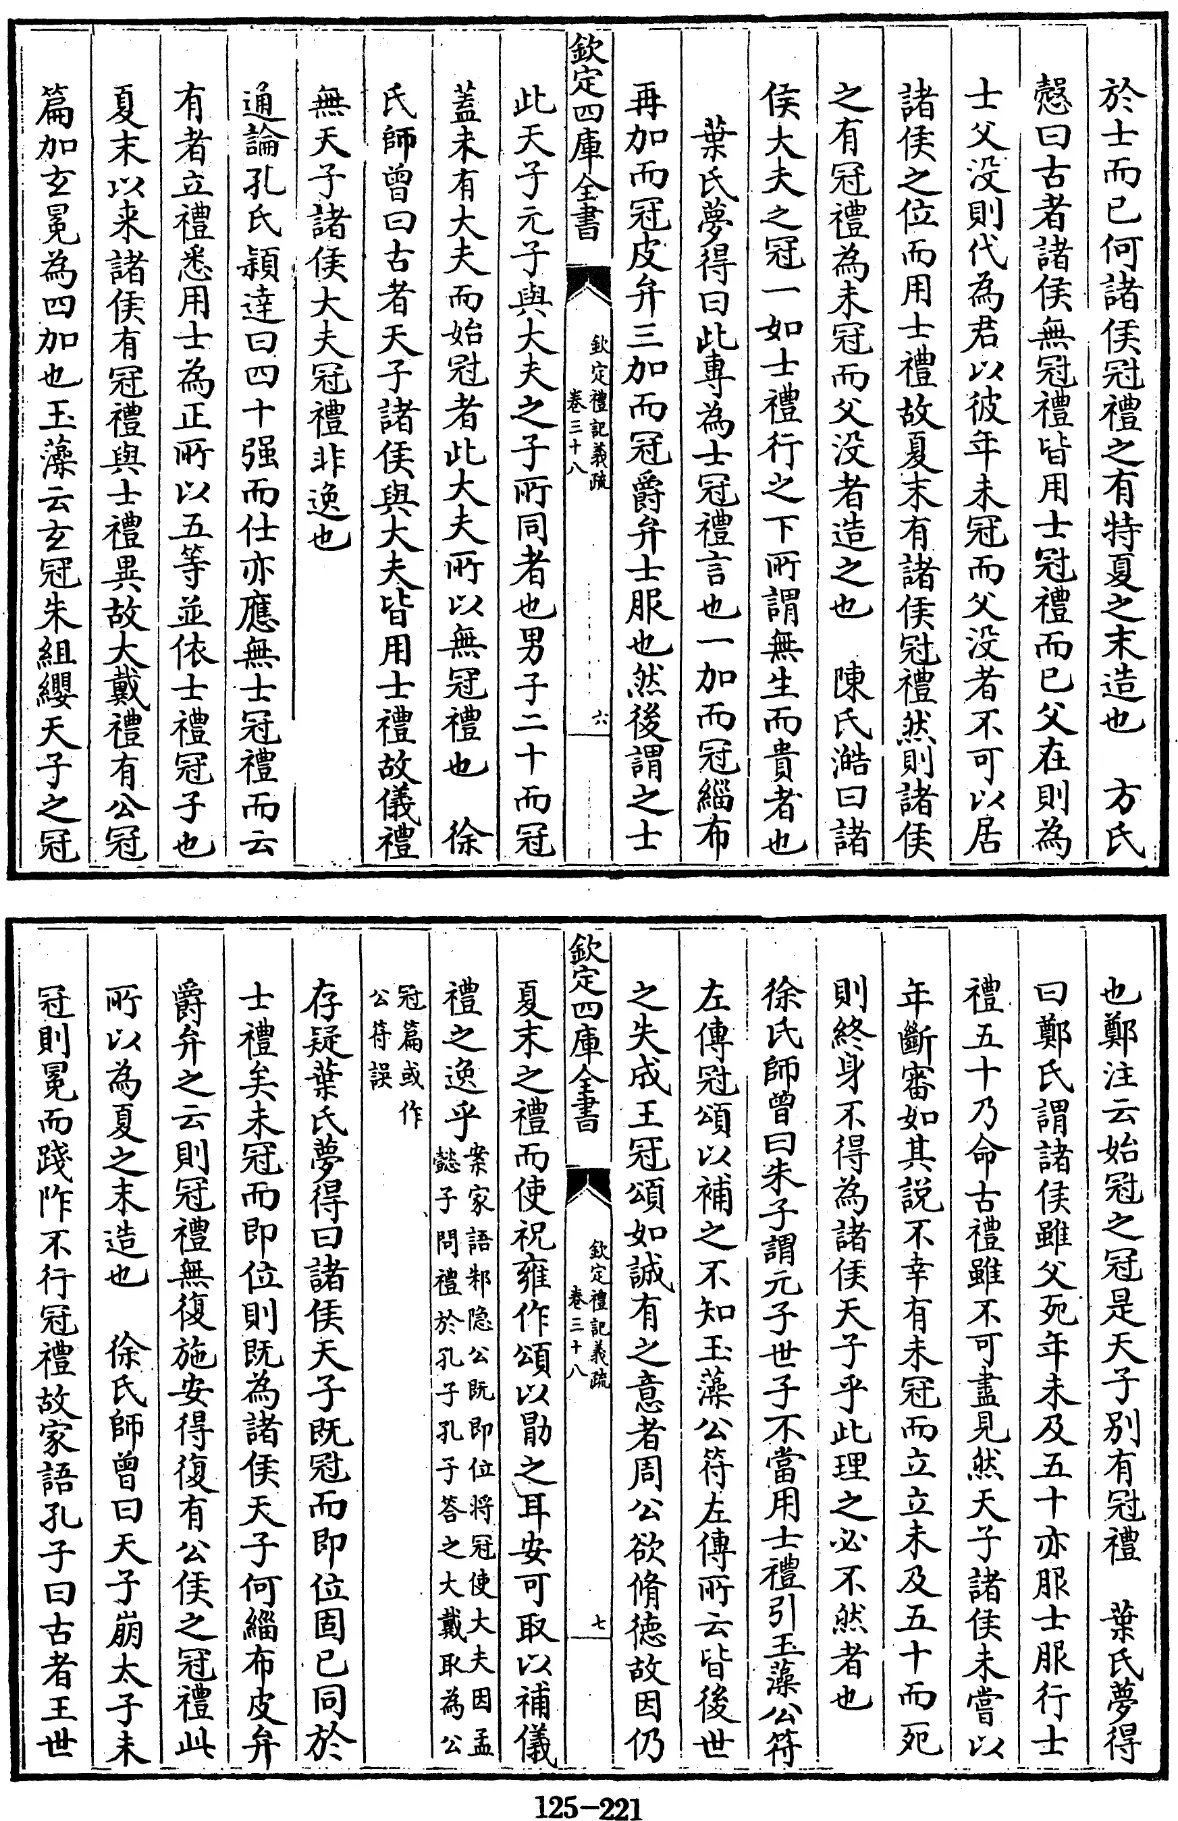 於士而已何諸侯冠禮之有特夏之末造也　方氏
慤曰古者諸侯無冠禮皆用士冠禮而已父在則為
士父没則代為君以彼年未冠而父没者不可以居
諸侯之位而用士禮故夏末有諸侯冠禮然則諸侯
之有冠禮為未冠而父没者造之也　陳氏澔曰諸
侯大夫之冠一如士禮行之下所謂無生而貴者也
葉氏夢得曰此專為士冠禮言也一加而冠緇布
再加而冠皮弁三加而冠爵弁士服也然後謂之士
欽定四庫全書
欽定禮記義疏
卷三十八
六
此天子元子與大夫之子所同者也男子二十而冠
蓋未有大夫而始冠者此大夫所以無冠禮也　徐
氏師曾曰古者天子諸侯與大夫皆用士禮故儀禮
無天子諸侯大夫冠禮非逸也
通論孔氏穎達曰四十强而仕亦應無士冠禮而云
有者立禮悉用士為正所以五等並依士禮冠子也
夏末以来諸侯有冠禮與士禮異故大戴禮有公冠
篇加玄冕為四加也玉藻云玄冠朱組纓天子之冠
也鄭注云始冠之冠是天子别有冠禮　葉氏夢得
曰鄭氏謂諸侯雖父死年未及五十亦服士服行士
禮五十乃命古禮雖不可盡見然天子諸侯未嘗以
年斷審如其説不幸有未冠而立立未及五十而死
則終身不得為諸侯天子乎此理之必不然者也
徐氏師曾曰朱子謂元子世子不當用士禮引玉藻公符
左傳冠頌以補之不知玉藻公符左傳所云皆後世
之失成王冠頌如誠有之意者周公欲脩德故因仍
欽定四庫全書
欽定禮記義疏
卷三十八
七
夏末之禮而使祝雍作頌以勖之耳安可取以補儀
禮之逸乎案家語邾隐公既即位将冠使大夫因孟
懿子問禮於孔子孔子答之大戴取為公
冠篇或作
公符誤
存疑葉氏夢得曰諸侯天子既冠而即位固已同於
士禮矣未冠而即位則既為諸侯天子何緇布皮弁
爵弁之云則冠禮無復施安得復有公侯之冠禮此
所以為夏之末造也　徐氏師曾曰天子崩太子未
冠則冕而踐阼不行冠禮故家語孔子曰古者王世
125-221